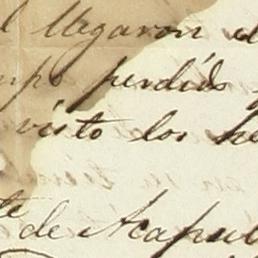 l llegaron e
mpo perdido
visto los he
te de Acapul